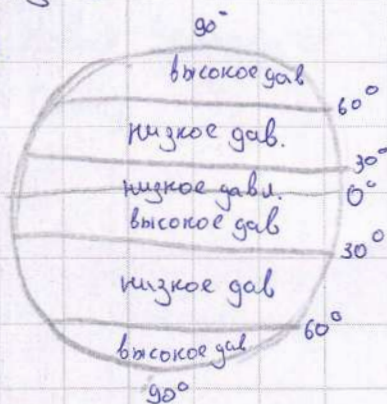 90°
высокое дав
60°
низкое дав.
30°
низкое давл.
0°
высокое дав
30°
низкое дав
60°
высокое дав
90°